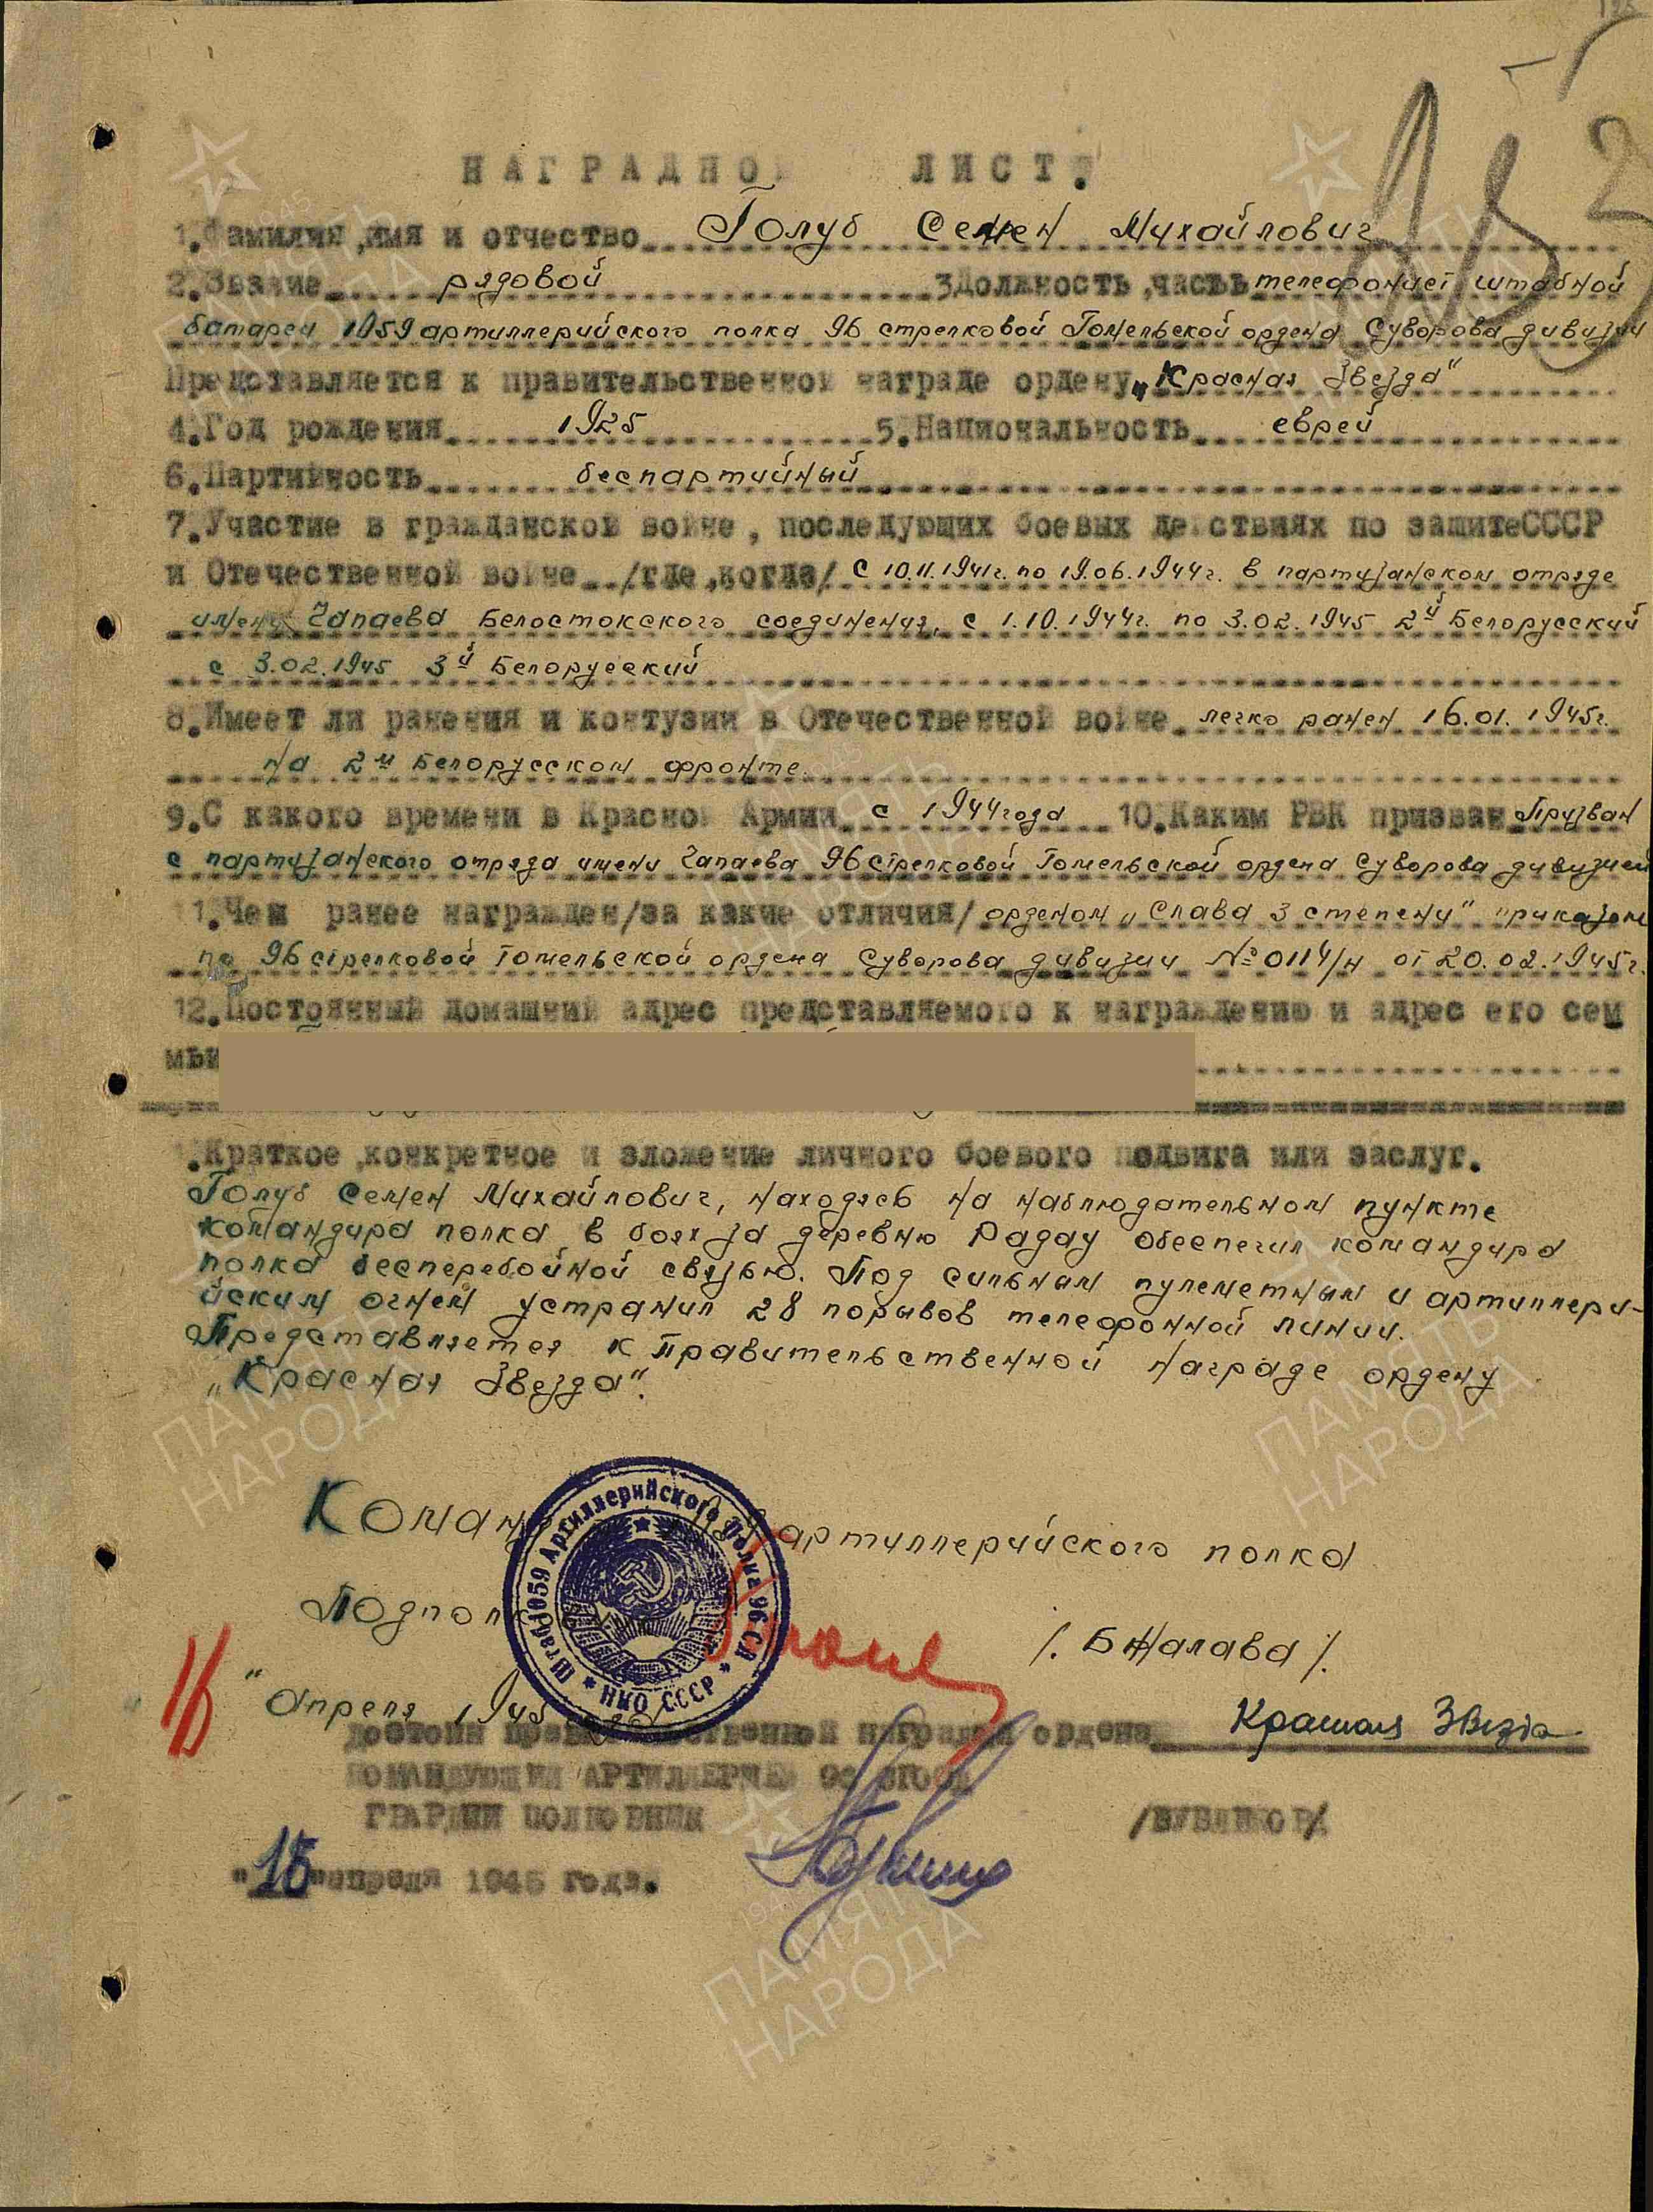 НАГРАДНОЙ ЛИСТ.
1. Фамилия, имя и отчество Голуб Семен Михайлович
2. Звание рядовой 3 Должность, часть телефонист штабной
батареи 1059 артиллерийского полка 96 стрелковой Гомельской ордена Суворова дивизии
Представляется к правительственной награде ордену „Красная Звезда"
4. Год рождения 1925 5. Национальность еврей
6. Партийность беспартийный
7. Участие в гражданской войне, последующих боевых действиях по защите СССР
и Отечественной войне /где, когда/ с 10.11.1941г. по 19.06.1944г. в партизанском отряде
имени Чапаева Белостокского соединения, с 1.10.1944г. по 3.02.1945 2й Белорусский
с 3.02.1945 3й Белорусский
8. Имеет ли ранения и контузии в Отечественной войне легко ранен 16.01.1945г.
на 2м Белорусском фронте.
9. С какого времени в Красной Армии с 1944 года 10. Каким РВК призван Призван
с партизанского отряда имени Чапаева 96 стрелковой Гомельской ордена Суворова дивизией
11. Чем ранее награжден /за какие отличия/ орденом „Слава 3 степени" приказом
по 96 стрелковой Гомельской ордена Суворова дивизии № 0114/н от 20.02.1945г.
12. Постоянный домашний адрес представляемого к награждению и адрес его сем
мьи
. Краткое, конкретное изложение личного боевого подвига или заслуг.
Голуб Семен Михайлович, находясь на наблюдательном пункте
командира полка в боях за деревню Радау обеспечил командира
полка бесперебойной связью. Под сильным пулеметным и артиллери-
йским огнем устранил 28 порывов телефонной линии.
Представляется к Правительственной награде ордену
„Красная Звезда".
Команд артиллерийского полка
Подполк /. Бжалава /.
Штаб 1059 Артиллерийского Полка 96 СД * НКО СССР *
16 " Апреля 1945
достоин правительственной награды ордена Красная Звезда
КОМАНДУЮЩИЙ АРТИЛЛЕРИЕЙ 96
ГВАРДИИ ПОЛКОВНИК /БУБЛИКОВ/
"16" апреля 1945 года.
ПАМЯТЬ НАРОДА